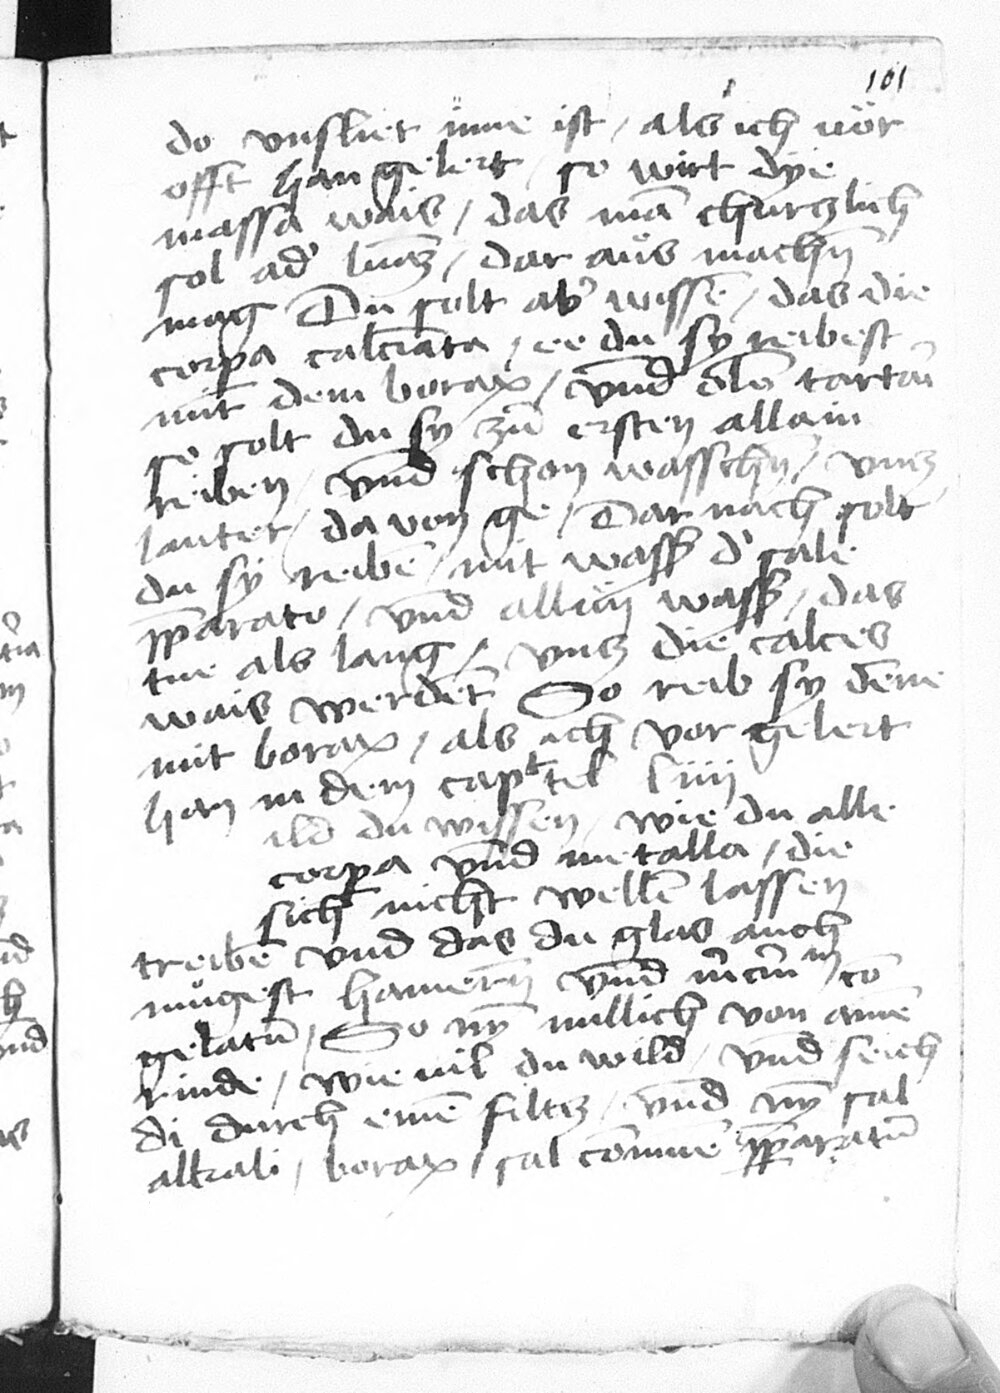 101
do vnsliet inne ist / als ich uör
offt han gelert / so wirt dÿe
massa wais / das mā chürczlich
sol ad' lunā / dar aüs machn̄
mag Du solt ab' wissē / das die
corpa calcīata / ee du sy reibest
mit dem borax / vnd olō tartari
so solt du sy zū ersten allain
reiben / vnd schon wasschn̄ / vncz
lauter / da von ge / Dar nach solt
du sÿ reibē / mit wass' d' sale
pparato / vnd allein wass' / das
tue als lang / vncz die calces
wais werdēt So reib sy dēne
mit borax / als ich vor gelert
han in dem capitel liiij
ild du wissen / wie du alle
corpa vnd metalla / die
sich nicht wellē lassen
treibē vnd das du glas auch
mügest hamern̄ vnd m'curiū cō
gelatū / So nȳ millich von aine
rinde / wie uil du wild / vnd seich
di durch eine filtz / vnd nȳ sal
alkali / borax / sal comune pparatū